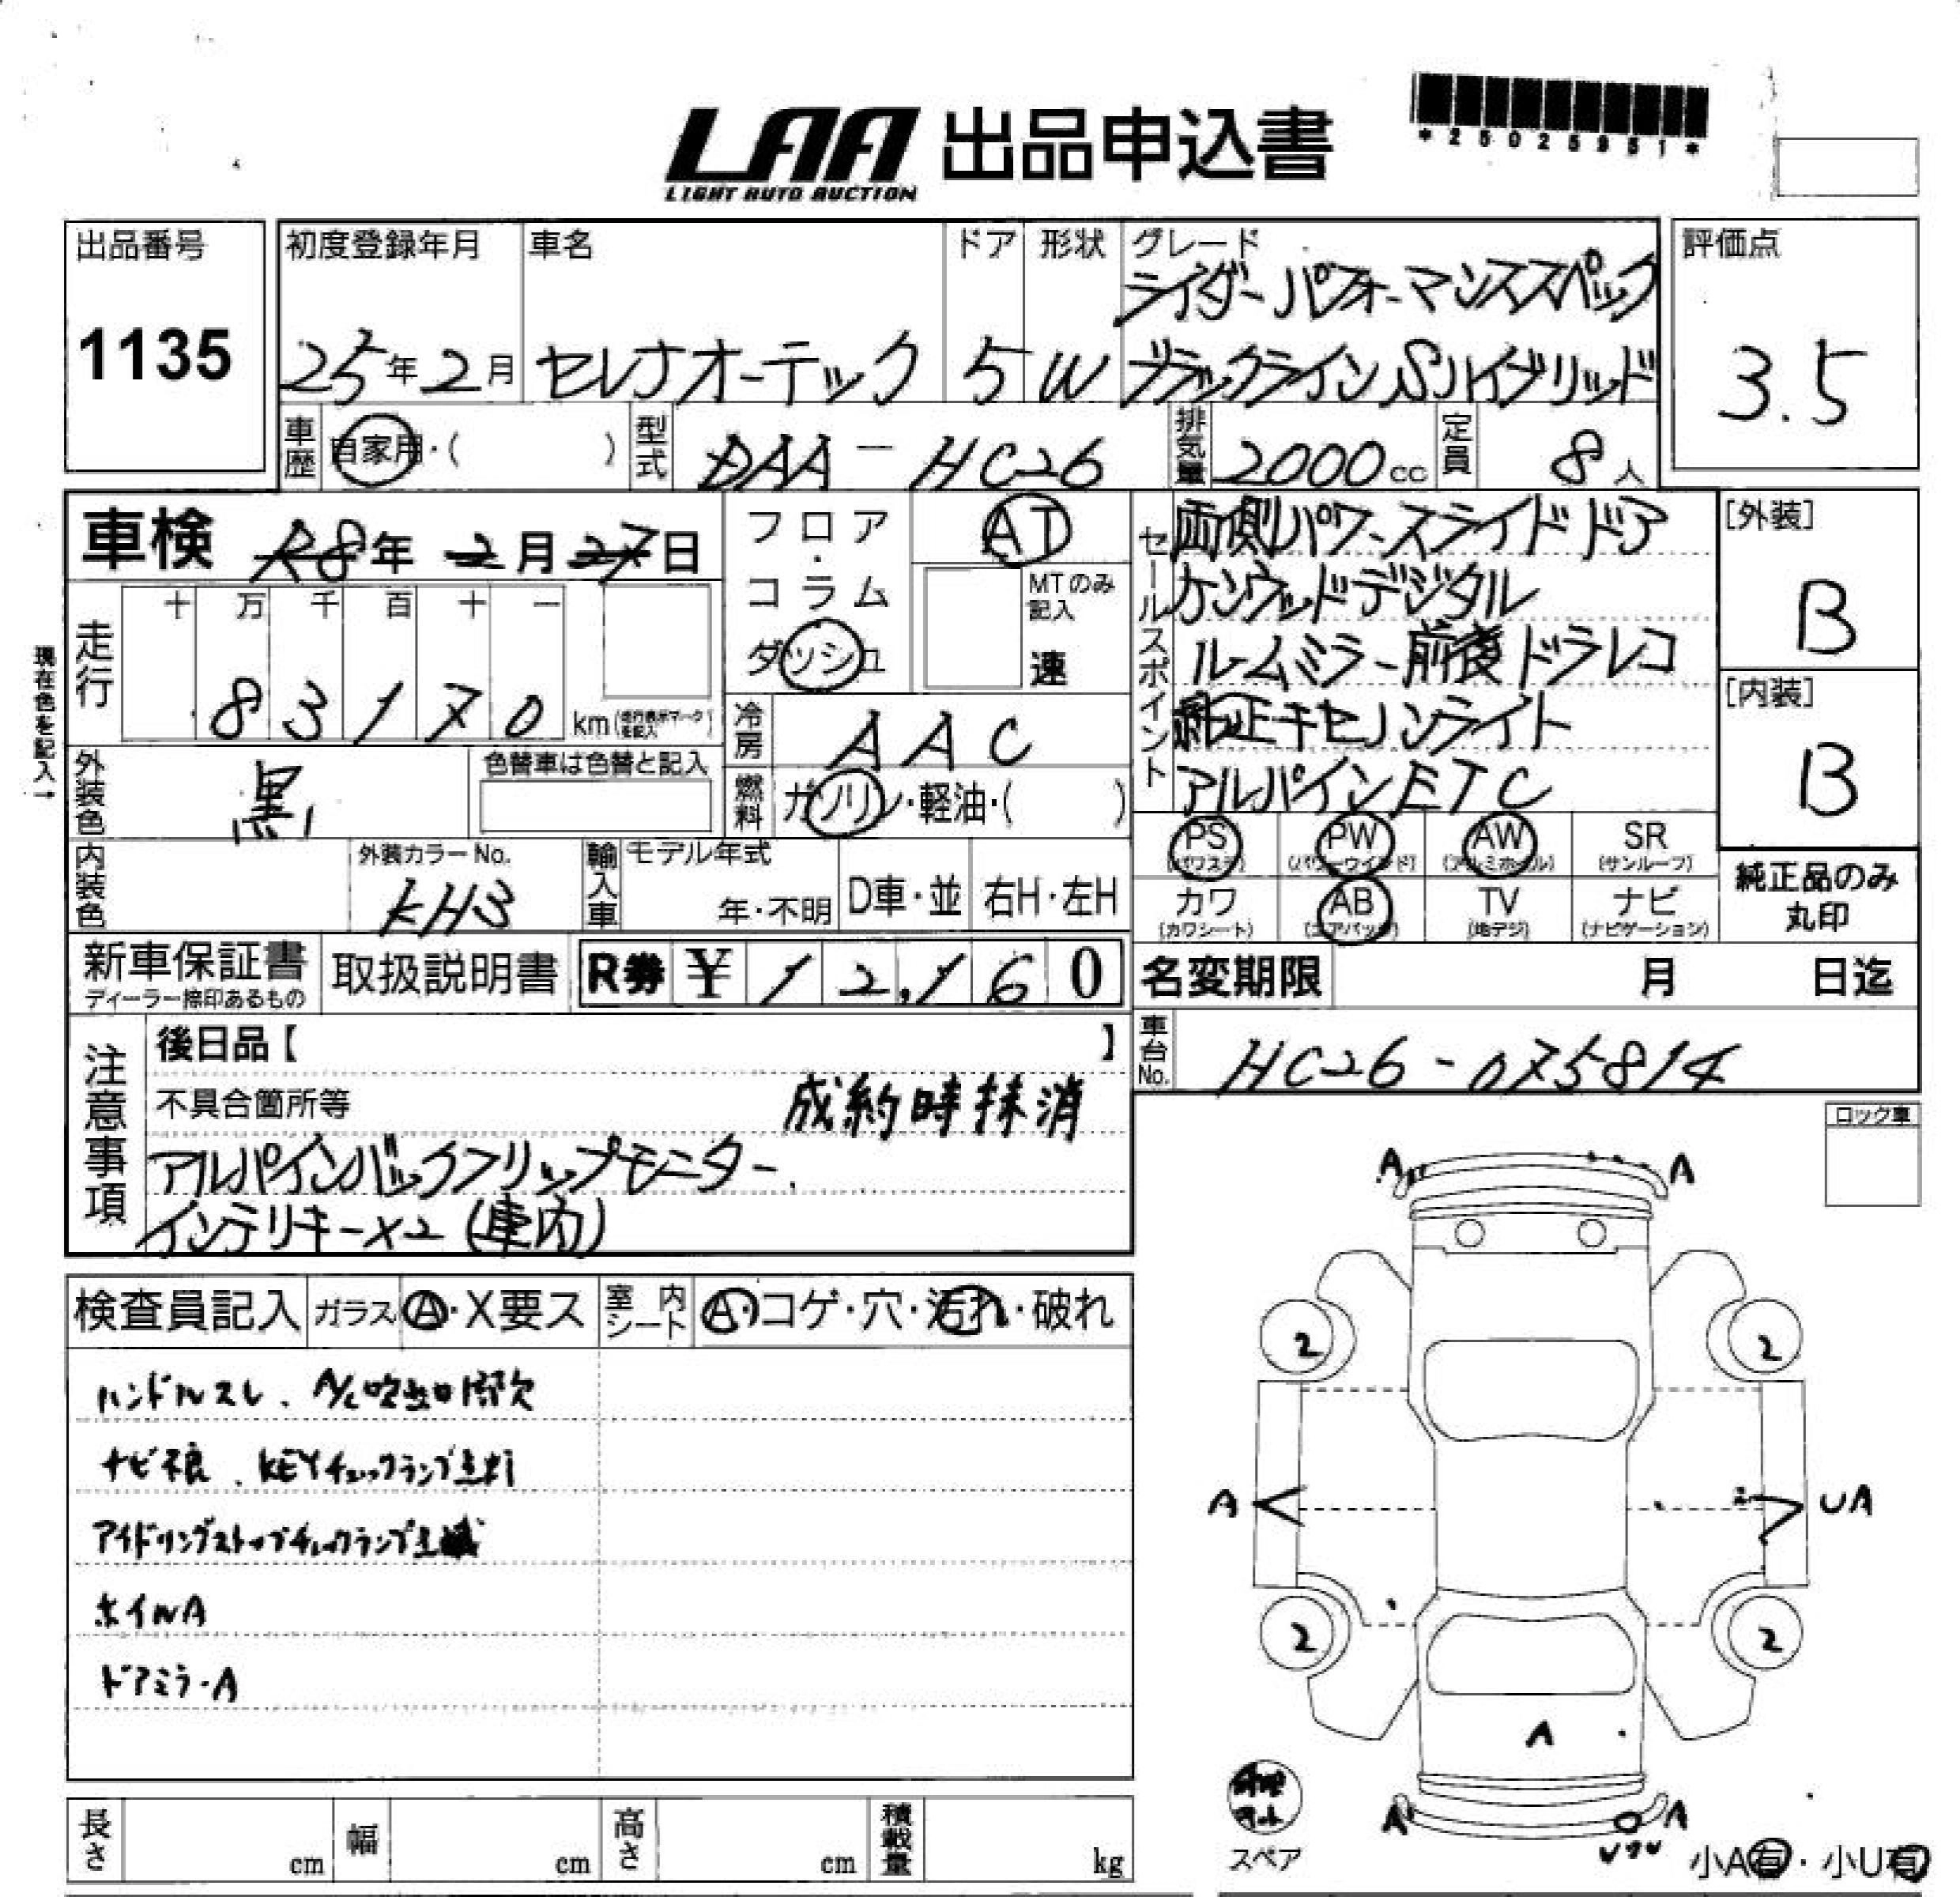 LAA 出品申込書
LIGHT AUTO AUCTION
*25025951*
出品番号
1135
初度登録年月
25年2月
車名
セレナオーテック
ドア
5
形状
W
グレード
ライダーパフォーマンススペック
ブラックラインSハイブリッド
評価点
3.5
車歴
自家用・( )
型式
DAA-HC26
排気量
2000cc
定員
8人
車検 R8年2月27日
フロア・コラム
ダッシュ
AT
MTのみ記入
速
セールスポイント
両側パワースライドドア
ケンウッドデジタル
ルームミラー前後ドラレコ
純正キセノンライト
アルパインETC
[外装]
B
[内装]
B
現在色を記入→
走行
十 万 千 百 十 一
83170 km
冷房
AAC
外装色
黒
色替車は色替と記入
燃料
ガソリン・軽油・( )
内装色
外装カラーNo.
KH3
輸入車
モデル年式
年・不明
D車・並
右H・左H
PS (パワステ)
PW (パワーウインド)
AW (アルミホイル)
SR (サンルーフ)
カワ (カワシート)
AB (エアバッグ)
TV (地デジ)
ナビ (ナビゲーション)
純正品のみ
丸印
新車保証書
ディーラー捺印あるもの
取扱説明書
R券 ¥12,160
名変期限 月 日迄
車台No.
HC26-075814
注意事項
後日品【 】
不具合箇所等
成約時抹消
アルパインバックフリップモニター
インテリキー×2(車内)
ロック車
検査員記入
ガラス A・X要ス
室内シート A・コゲ・穴・汚れ・破れ
ハンドルスレ、A/C吹出口隔欠
ナビ不良、KEYチェックランプ点灯
アイドリングストップチェックランプ点滅
ホイルA
ドアミラーA
A A
2 2
A UA
2 2
A
A A
スペア
小A有・小U有
長さ cm
幅 cm
高さ cm
積載量 kg